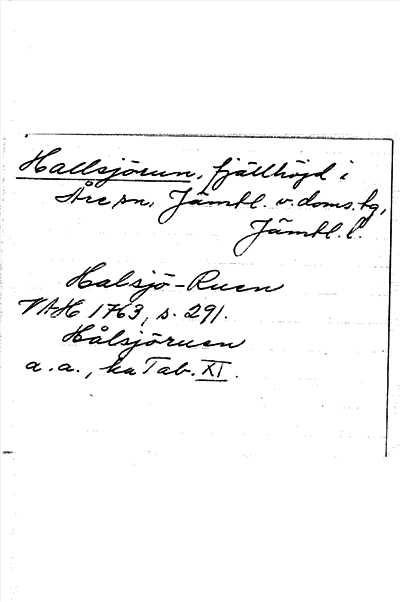 Hallsjöruen, fjällhöjd i
Åre sn, Jämtl. v. doms. tg,
Jämtl. l.
Halsjö-Ruen
VAH 1763, s. 291.
Hålsjöruen
a. a., ka Tab. XI.